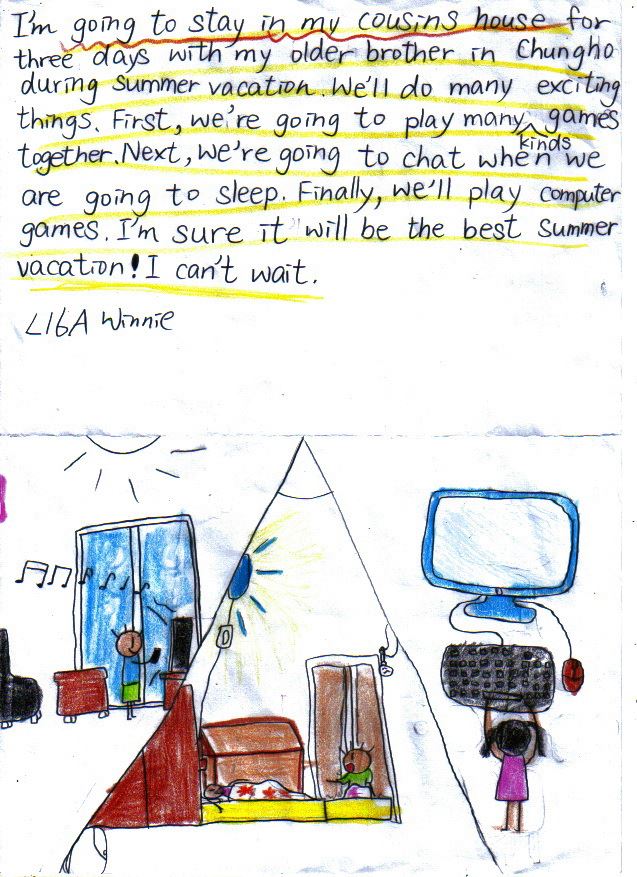 I'm going to stay in my cousins house for
three days with my older brother in Chungho
during summer vacation. We'll do many exciting
things. First, we're going to play many kinds games
together. Next, we're going to chat when we
are going to sleep. Finally, we'll play computer
games. I'm sure it will be the best summer
vacation! I can't wait.
L16A Winnie